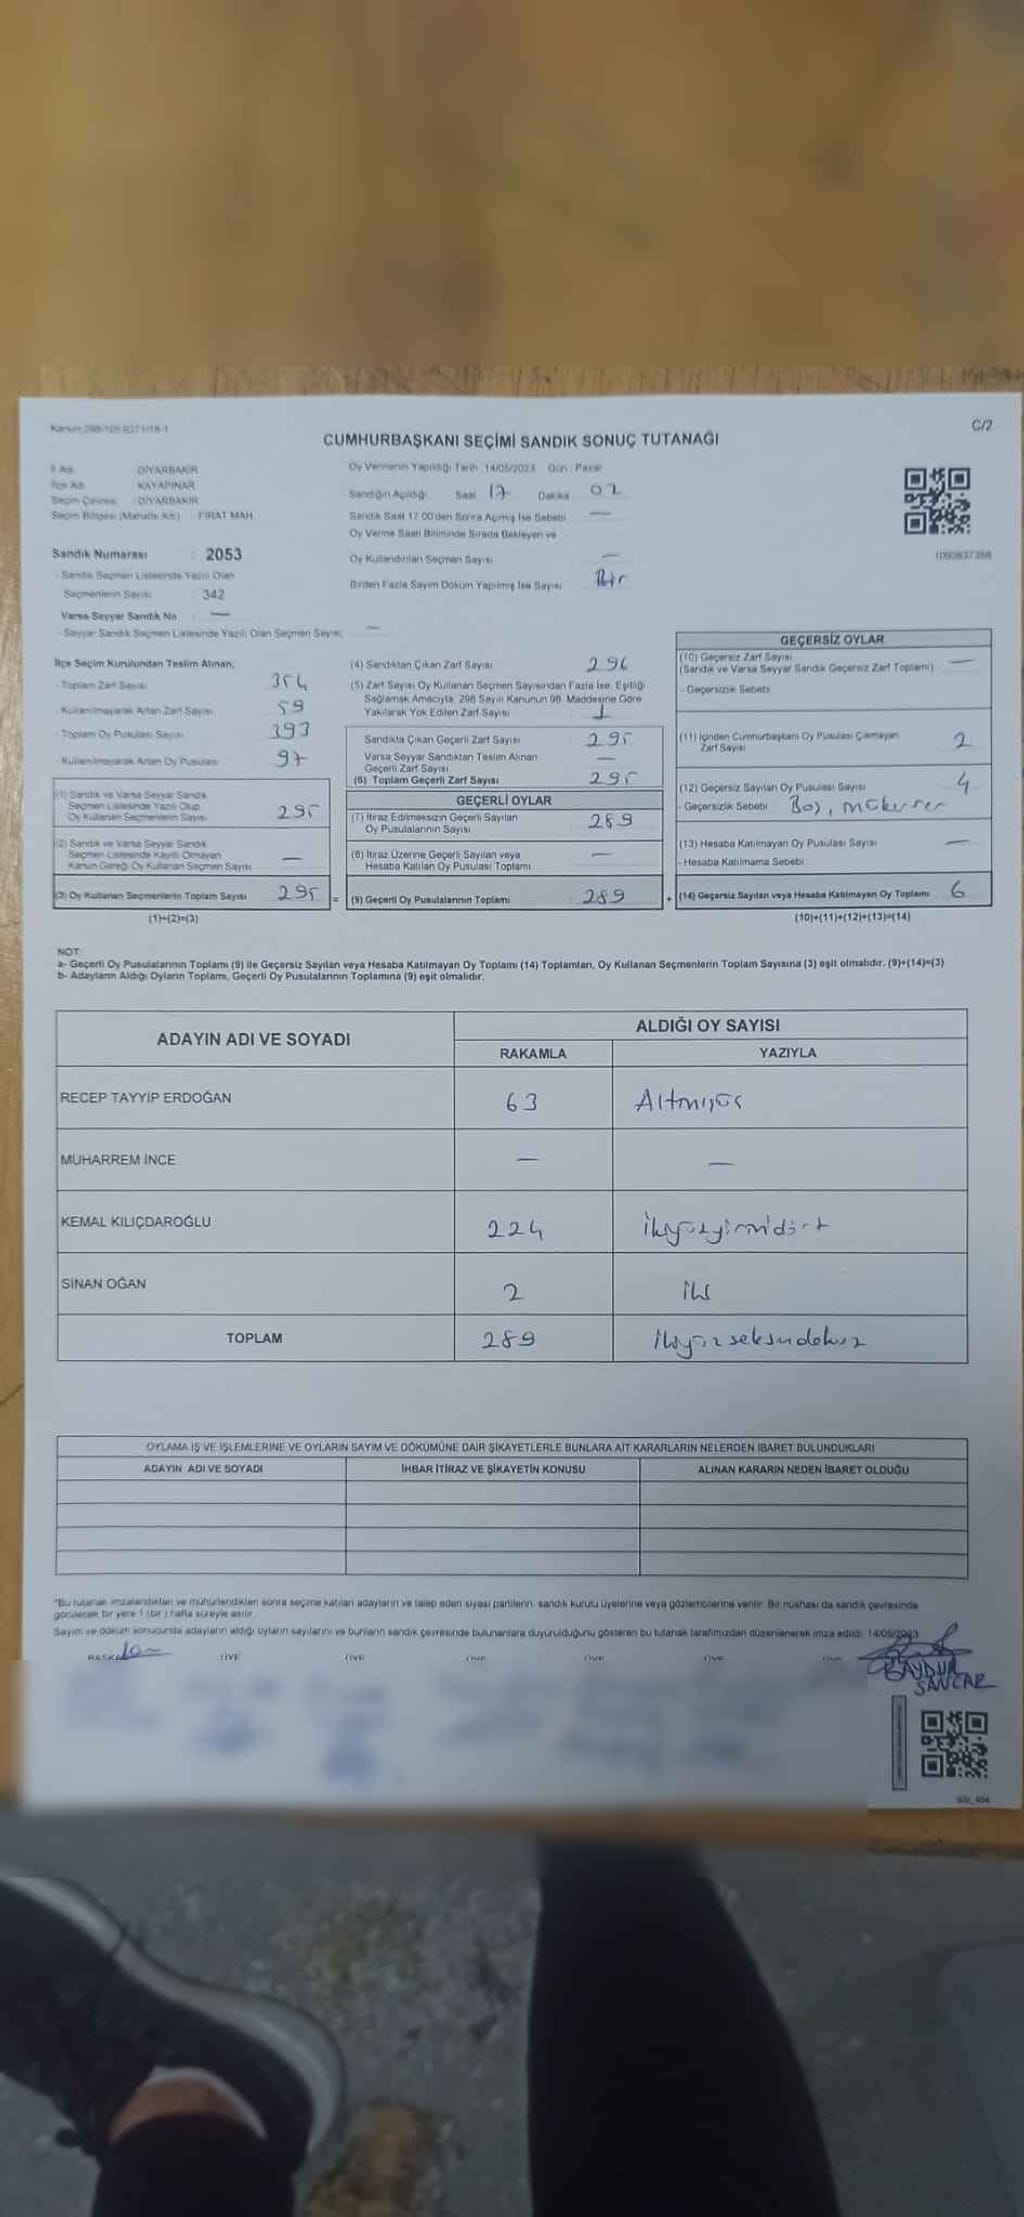 Kanun:298/105,6271/18-1
C/2
CUMHURBAŞKANI SEÇİMİ SANDIK SONUÇ TUTANAĞI
İl Adı : DİYARBAKIR
İlçe Adı : KAYAPINAR
Seçim Çevresi : DİYARBAKIR
Seçim Bölgesi (Mahalle Adı) : FIRAT MAH.
Oy Vermenin Yapıldığı Tarih :14/05/2023 Gün : Pazar
Sandığın Açıldığı Saat 17 Dakika 02
Sandık Saat 17:00'den Sonra Açılmış İse Sebebi —
Oy Verme Saati Bitiminde Sırada Bekleyen ve
Oy Kullandırılan Seçmen Sayısı —
Birden Fazla Sayım Döküm Yapılmış İse Sayısı Bir
Sandık Numarası : 2053
- Sandık Seçmen Listesinde Yazılı Olan
Seçmenlerin Sayısı 342
Varsa Seyyar Sandık No —
- Seyyar Sandık Seçmen Listesinde Yazılı Olan Seçmen Sayısı —
İlçe Seçim Kurulundan Teslim Alınan;
- Toplam Zarf Sayısı 354
- Kullanılmayarak Artan Zarf Sayısı 59
- Toplam Oy Pusulası Sayısı 393
- Kullanılmayarak Artan Oy Pusulası 97
(1) Sandık ve Varsa Seyyar Sandık
Seçmen Listesinde Yazılı Olup
Oy Kullanan Seçmenlerin Sayısı 295
(2) Sandık ve Varsa Seyyar Sandık
Seçmen Listesinde Kayıtlı Olmayan
Kanun Gereği Oy Kullanan Seçmen Sayısı —
(3) Oy Kullanan Seçmenlerin Toplam Sayısı 295 =
(1)+(2)=(3)
(4) Sandıktan Çıkan Zarf Sayısı 296
(5) Zarf Sayısı Oy Kullanan Seçmen Sayısından Fazla İse, Eşitliği
Sağlamak Amacıyla, 298 Sayılı Kanunun 98. Maddesine Göre
Yakılarak Yok Edilen Zarf Sayısı 1
Sandıkta Çıkan Geçerli Zarf Sayısı 295
Varsa Seyyar Sandıktan Teslim Alınan
Geçerli Zarf Sayısı —
(6) Toplam Geçerli Zarf Sayısı 295
GEÇERLİ OYLAR
(7) İtiraz Edilmeksizin Geçerli Sayılan
Oy Pusulalarının Sayısı 289
(8) İtiraz Üzerine Geçerli Sayılan veya
Hesaba Katılan Oy Pusulası Toplamı —
(9) Geçerli Oy Pusulalarının Toplamı 289 +
GEÇERSİZ OYLAR
(10) Geçersiz Zarf Sayısı
(Sandık ve Varsa Seyyar Sandık Geçersiz Zarf Toplamı) —
- Geçersizlik Sebebi
(11) İçinden Cumhurbaşkanı Oy Pusulası Çıkmayan
Zarf Sayısı 2
(12) Geçersiz Sayılan Oy Pusulası Sayısı 4
- Geçersizlik Sebebi Boş, mükerrer
(13) Hesaba Katılmayan Oy Pusulası Sayısı —
- Hesaba Katılmama Sebebi
(14) Geçersiz Sayılan veya Hesaba Katılmayan Oy Toplamı 6
(10)+(11)+(12)+(13)=(14)
NOT:
a- Geçerli Oy Pusulalarının Toplamı (9) ile Geçersiz Sayılan veya Hesaba Katılmayan Oy Toplamı (14) Toplamları, Oy Kullanan Seçmenlerin Toplam Sayısına (3) eşit olmalıdır. (9)+(14)=(3)
b- Adayların Aldığı Oyların Toplamı, Geçerli Oy Pusulalarının Toplamına (9) eşit olmalıdır.
ADAYIN ADI VE SOYADI
ALDIĞI OY SAYISI
RAKAMLA YAZIYLA
RECEP TAYYİP ERDOĞAN 63 Altmışüç
MUHARREM İNCE — —
KEMAL KILIÇDAROĞLU 224 İkiyüzyirmidört
SİNAN OĞAN 2 iki
TOPLAM 289 İkiyüzseksendokuz
OYLAMA İŞ VE İŞLEMLERİNE VE OYLARIN SAYIM VE DÖKÜMÜNE DAİR ŞİKAYETLERLE BUNLARA AİT KARARLARIN NELERDEN İBARET BULUNDUKLARI
ADAYIN ADI VE SOYADI İHBAR İTİRAZ VE ŞİKAYETİN KONUSU ALINAN KARARIN NEDEN İBARET OLDUĞU
*Bu tutanak imzalandıktan ve mühürlendikten sonra seçime katılan adayların ve talep eden siyasi partilerin, sandık kurulu üyelerine veya gözlemcilerine verilir. Bir nüshası da sandık çevresinde
görülecek bir yere 1 (bir ) hafta süreyle asılır.
Sayım ve döküm sonucunda adayların aldığı oyların sayılarını ve bunların sandık çevresinde bulunanlara duyurulduğunu gösteren bu tutanak tarafımızdan düzenlenerek imza edildi. 14/05/2023
BAŞKAN ÜYE ÜYE ÜYE ÜYE ÜYE
SANCAR